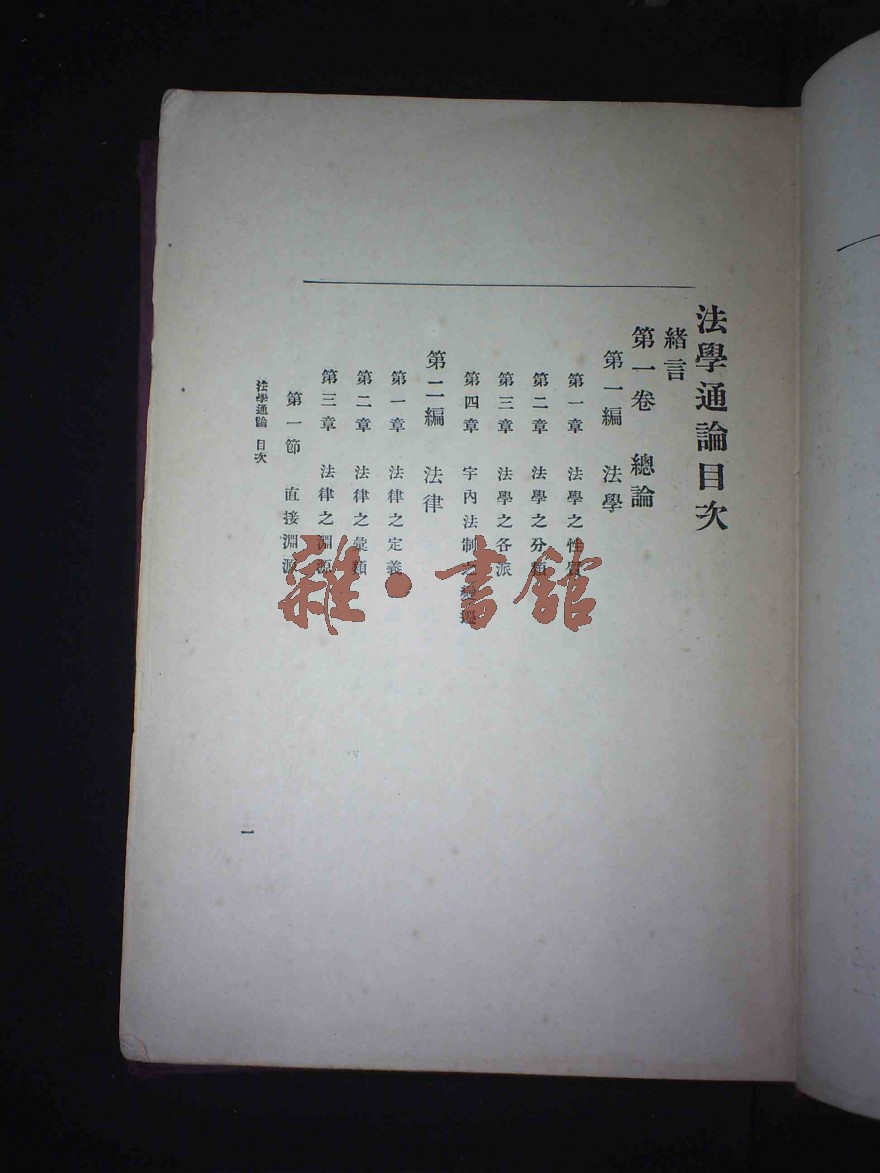 法學通論目次
緒言
第一卷 總論
第一編 法學
第一章 法學之性質
第二章 法學之分類
第三章 法學之各派
第四章 宇內法制之變遷
第二編 法律
第一章 法律之定義
第二章 法律之彙類
第三章 法律之淵源
第一節 直接淵源
法學通論 目次
一
雜·書館